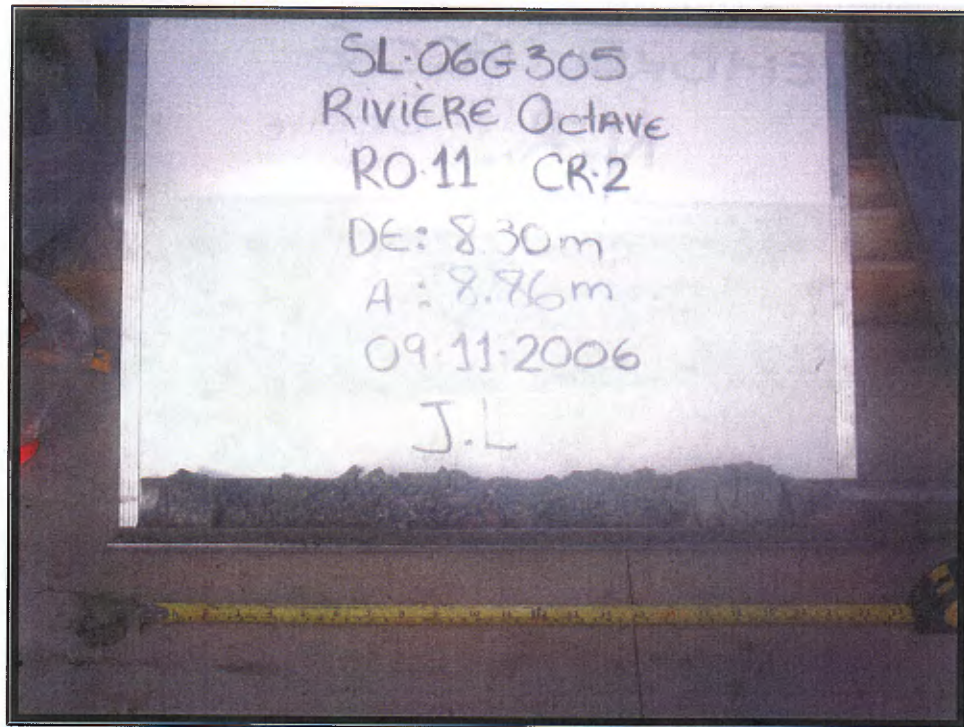 SL·06G305
RIVIÈRE OCTAVE
RO·11 CR·2
DE: 8.30m
A : 8.86m
09·11·2006
J.L